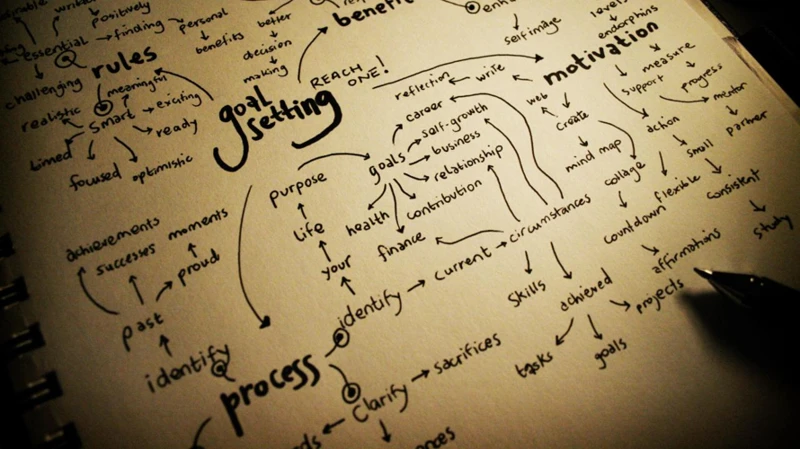 positively
essential
finding
personal
benefits
better
decision
making
self image
levels
endorphins
rules
challenging
meaningful
realistic
smart
exciting
ready
timed
focused
optimistic
goal
setting
REACH
ONE!
motivation
reflection
write
web
create
mind map
support
measure
progress
mentor
action
small
partner
collage
flexible
consistent
countdown
study
affirmations
projects
goals
career
self-growth
business
relationship
contribution
health
finance
purpose
life
your
identify
current
circumstances
skills
achieved
tasks
goals
achievements
successes
moments
proud
past
identify
process
Clarify
sacrifices